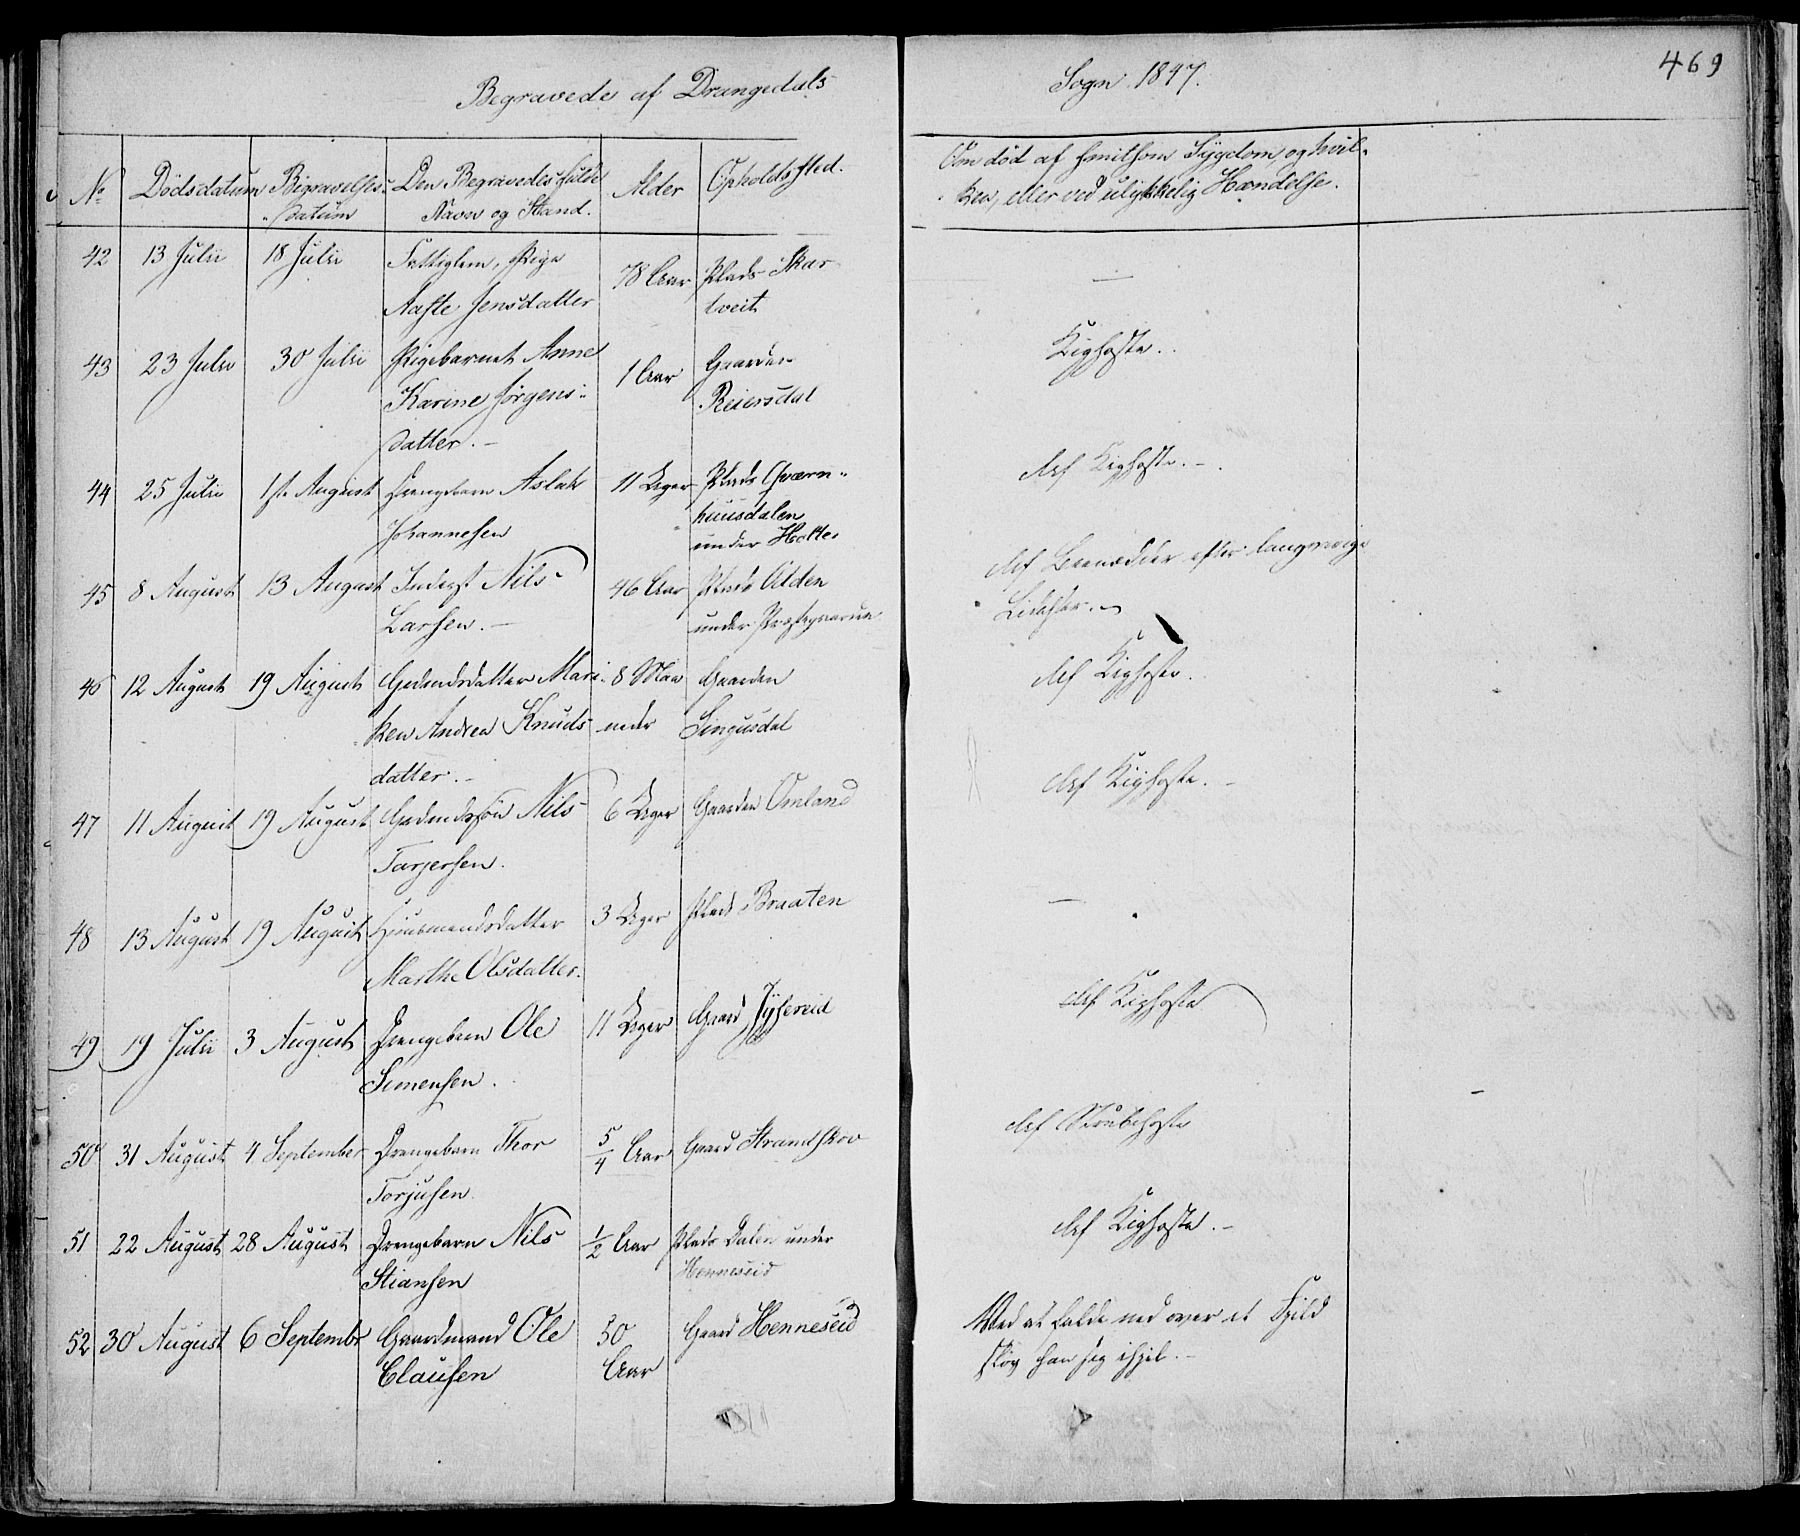 469
Begravede af Drangedals Sogn 1847.
No Dödsdatum Begravelses- Den Begravedes fulde Alder Opholdssted. Om död af smitsom Sygdom, og hvil-
Datum Navn og Stand. ken, eller ved ulykkelig Hændelse.
42 13 Julii 18 Julii Fattiglem, Pige 78 Aar Plads Skar
Aaste Jensdatter tveit
—
43 23 Julii 30 Julii Pigebarnet Anne 1 Aar Gaarden Kighoste.
Karine Jørgens- Reiersdal
datter.—
44 25 Julii 1ste August Drengebarn Aslak 11 Uger Plads Qværn- Af Kighoste.—
Johannesen huusdalen
under Holte
45 8 August 13 August Inderst Nils 46 Aar Plads Alden Af efter langvarige
Larsen.— under Lidelser.
46 12 August 19 August Gaardmandsdatter Mari- 8 Maa Gaarden Af Kighoste.
ken Andrea Knuds- neder Singusdal
datter.—
47 11 August 19 August Nils 6 Uger Gaarden Omland Af Kighoste.—
Tarjersen.
48 13 August 19 August Huusmandsdatter 3 Uger Plads Braaten —
Marthe Olsdatter.
49 19 Julii 3 August Drengebarn Ole 11 Uger Gaard Af Kighoste
Simensen.
50 31 August 4 September Drengebarn Thor 5/4 Aar Gaard Strandskov Af Strubehoste
Torjusen
51 22 August 28 August Drengebarn Nils 1/2 Aar Plads Dalen under Af Kighoste.—
Stiansen Henneseid
52 30 August 6 Septembr Gaardmand Ole 50 Gaard Henneseid Ved at falde ned over et Fjeld
Clausen Aar slog han sig ihjel.—